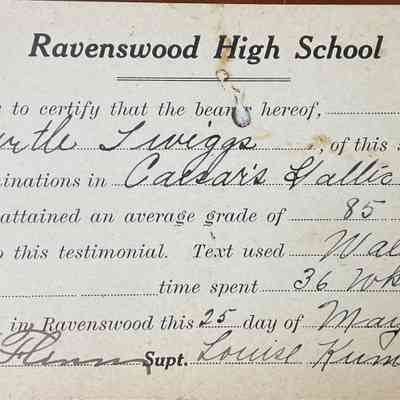 Ravenswood High School
s to certify that the bearer hereof,
urtle Twiggs, of this s
inations in Caesar's Gallic
attained an average grade of 85
o this testimonial. Text used Wal
time spent 36 Wk
in Ravenswood this 25 day of May
Flinn Supt. Louise Kum